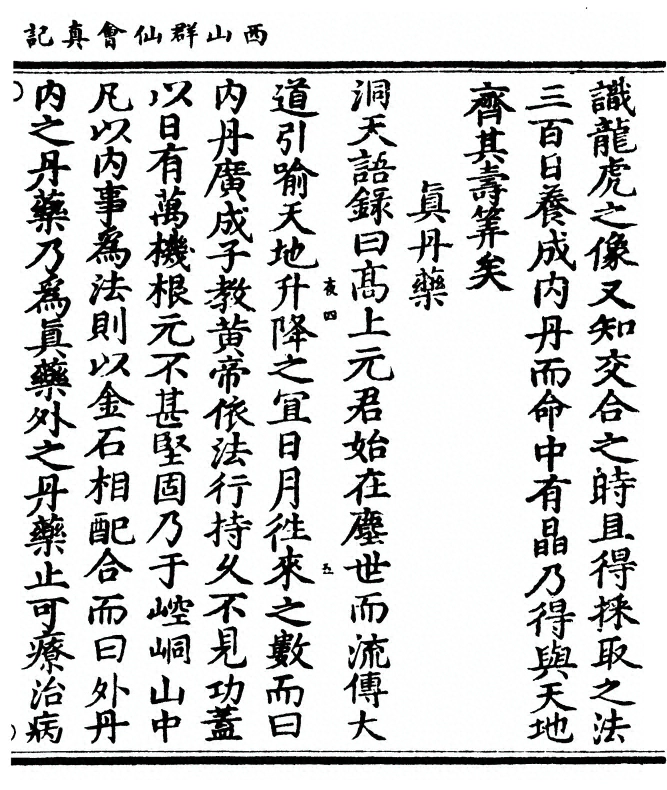 西山群仙會真記
識龍虎之像又知交合之時且得採取之法
三百日養成内丹而命中有晶乃得與天地
齊其壽筭矣
真丹藥
洞天語録曰高上元君始在塵世而流傳大
夜四
五
道引喻天地升降之宜日月徃來之數而曰
内丹廣成子教黄帝依法行持久不見功蓋
以日有萬機根元不甚堅固乃于崆峒山中
凡以内事為法則以金石相配合而曰外丹
内之丹藥乃為真藥外之丹藥止可療治病